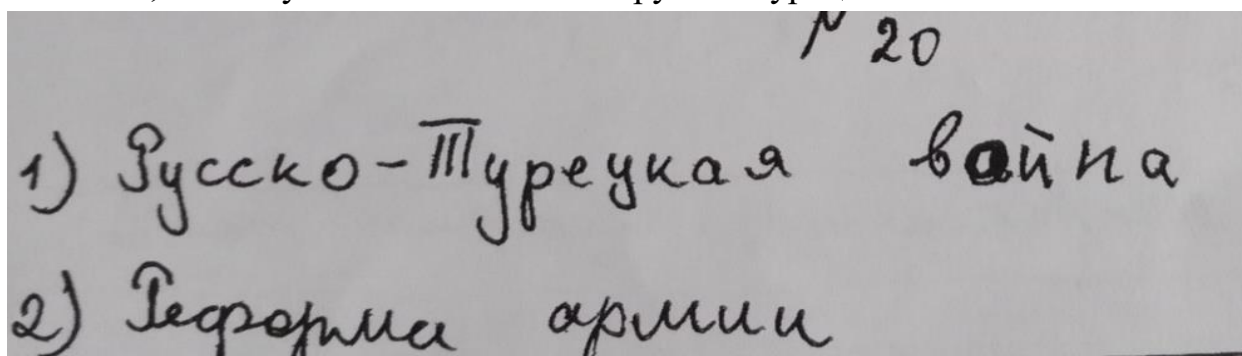 № 20
1) Русско-Турецкая война
2) Реформа армии